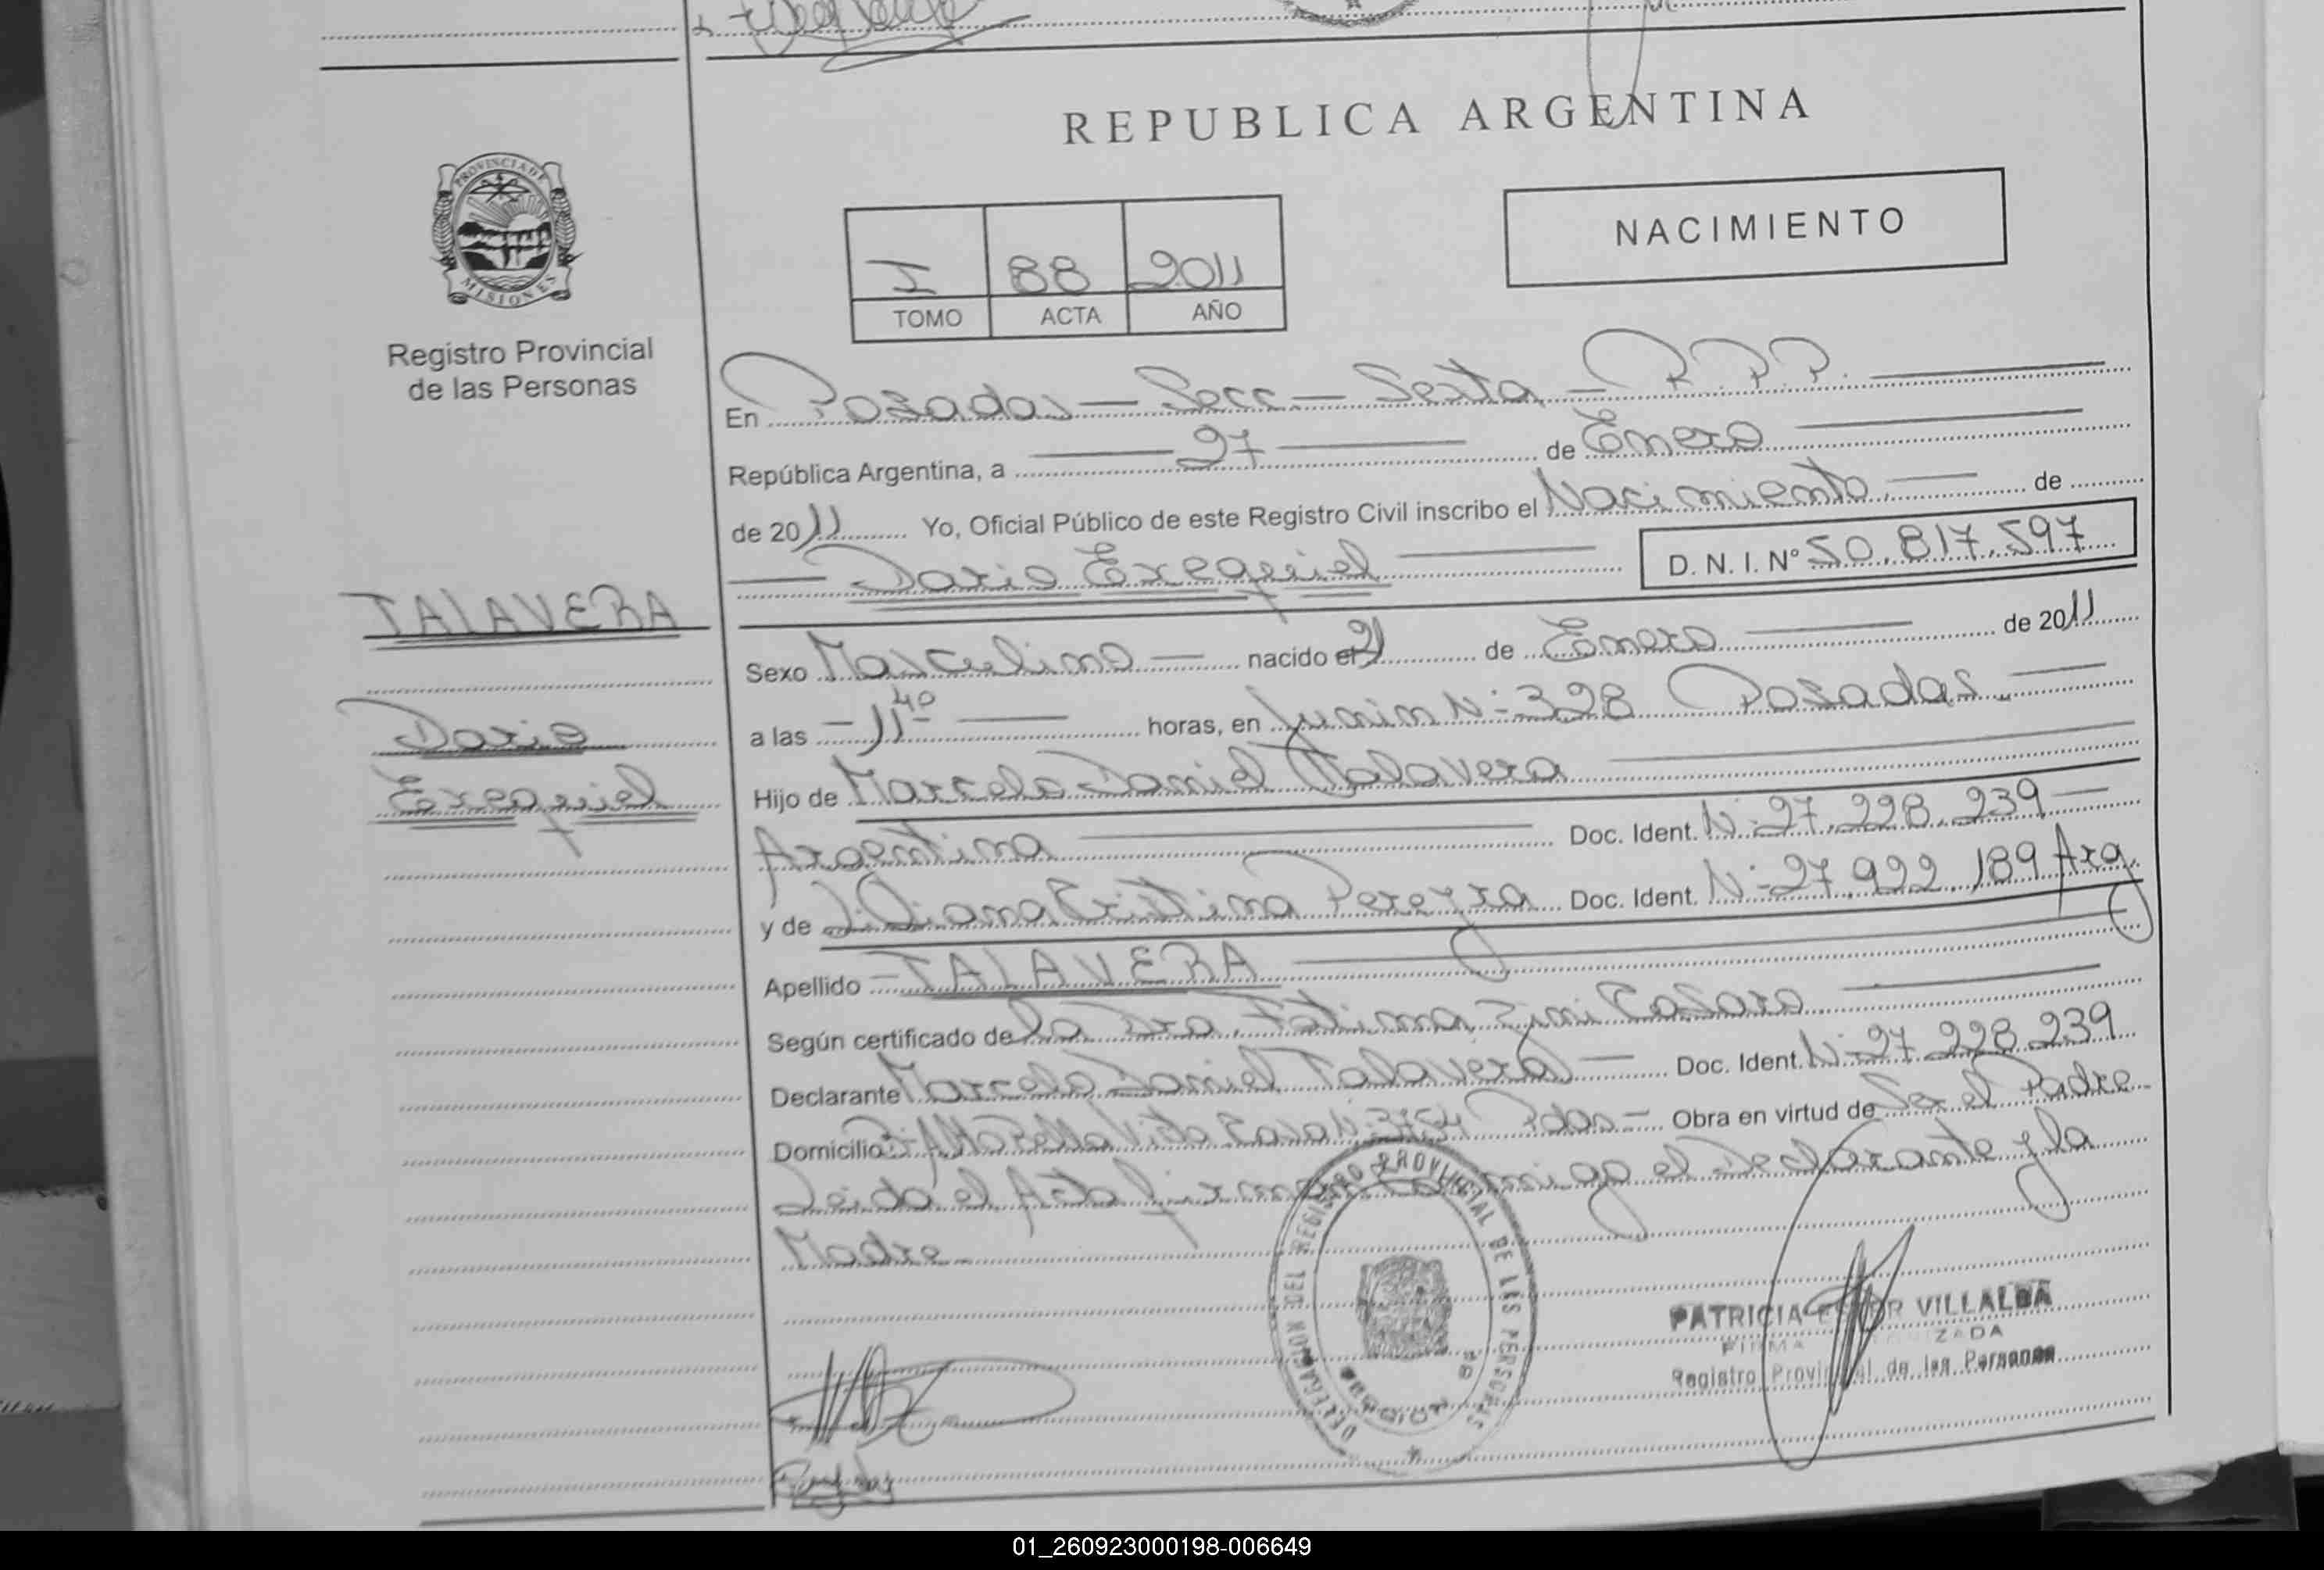 REPUBLICA ARGENTINA
PROVINCIA DE MISIONES
Registro Provincial
de las Personas
NACIMIENTO
I 88 2011
TOMO ACTA AÑO
En Posadas - Secc - Sexta - P.P.P.
República Argentina, a 27 de Enero
de 2011 Yo, Oficial Público de este Registro Civil inscribo el Nacimiento de
Dario Exequiel D. N. I. Nº 50.817.597
TALAVERA
Dario
Exequiel
Sexo Masculino nacido el 21 de Enero de 2011
a las 11 40 horas, en Junin Nº 328 Posadas
Hijo de Marcelo Daniel Talavera
Argentina Doc. Ident. Nº 27.228.239
y de Liliana Cristina Pereyra Doc. Ident. Nº 27.922.189 Arg.
Apellido TALAVERA
Según certificado de la Dra.
Declarante Marcelo Daniel Talavera Doc. Ident. Nº 27.228.239
Domicilio Obra en virtud de Ser el Padre
Leida el Acta firman el Declarante y la
Madre
DELEGACION DEL REGISTRO PROVINCIAL DE LAS PERSONAS
PATRICIA ESTER VILLALBA
FIRMA AUTORIZADA
Registro Provincial de las Personas
01_260923000198-006649